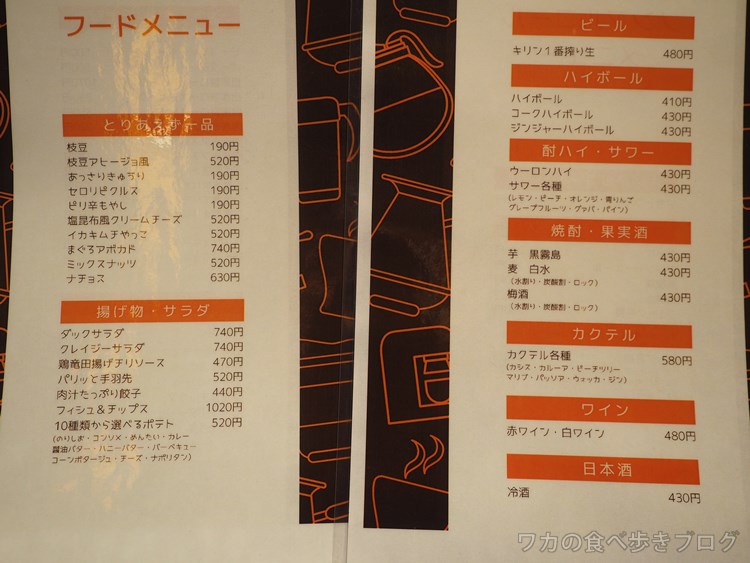 フードメニュー
とりあえず一品
枝豆 190円
枝豆アヒージョ風 520円
あっさりきゅうり 190円
セロリピクルス 190円
ピリ辛もやし 190円
塩昆布風クリームチーズ 520円
イカキムチやっこ 520円
まぐろアボカド 740円
ミックスナッツ 520円
ナチョス 630円
揚げ物・サラダ
ダックサラダ 740円
クレイジーサラダ 740円
鶏竜田揚げチリソース 470円
パリッと手羽先 520円
肉汁たっぷり餃子 440円
フィシュ＆チップス 1020円
10種類から選べるポテト 520円
(のりしお・コンソメ・めんたい・カレー
醤油バター・ハニーバター・バーベキュー
コーンポタージュ・チーズ・ナポリタン)
ビール
キリン１番搾り生 480円
ハイボール
ハイボール 410円
コークハイボール 430円
ジンジャーハイボール 430円
酎ハイ・サワー
ウーロンハイ 430円
サワー各種 430円
(レモン・ピーチ・オレンジ・青りんご
グレープフルーツ・グァバ・パイン)
焼酎・果実酒
芋 黒霧島 430円
麦 白水 430円
(水割り・炭酸割・ロック)
梅酒 430円
(水割り・炭酸割・ロック)
カクテル
カクテル各種 580円
(カシス・カルーア・ピーチツリー
マリブ・パッソア・ウォッカ・ジン)
ワイン
赤ワイン・白ワイン 480円
日本酒
冷酒 430円
ワカの食べ歩きブログ